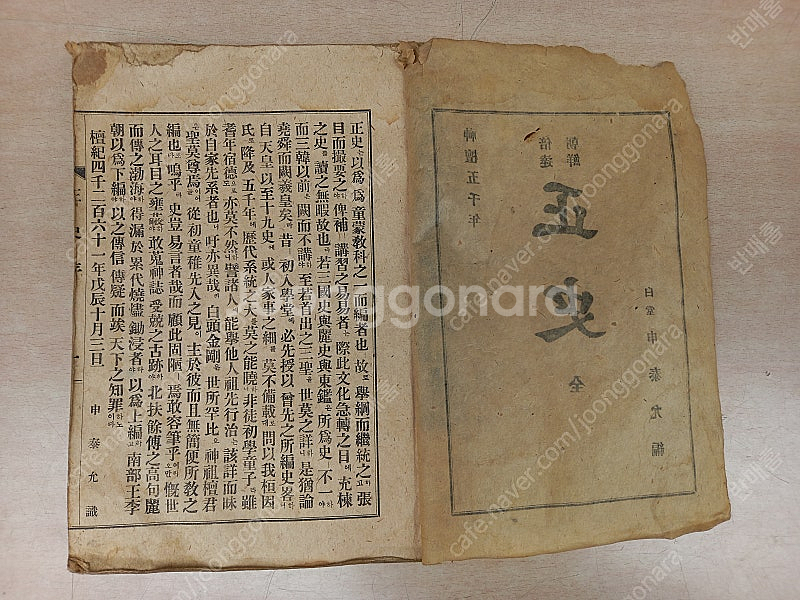 朝鮮
倍達
正史 全
神檀五千年
申泰允編
正史는以爲童蒙敎科之一而編者也故로擧綱而繼統之고張
目而撮要之하야俾補講習之易易者는際此文化急轉之日에充棟
之史를讀之無暇故也라若三國史與麗史與東鑑은所爲史ㅣ不一
而三韓以前은闕而不講하고至若首出之三聖은世莫之詳하니是猶論
堯舜而闕羲皇矣라昔에初入學堂에必先授以曾先之所編史畧하니
自天皇以至十九史에或人家事之細를莫不備載로대問以我桓因
氏로降及五千年에歷代系統之大를莫之能曉하니非徒初學童子라雖
耆年宿德도亦莫不然하니譬諸人컨대能擧他人祖先行治는該詳而昧
於自家先系者也니吁亦異哉라白頭金剛은世所罕比오神祖檀君은
聖莫尊焉이어늘從初童稚先入之見이主於彼而且無簡便所敎之
編也라嗚乎라史豈易言者哉며而顧此固陋ㅣ焉敢容筆乎리오만慨世
人之耳目之壅蔽하야敢蒐神誌受兢之古跡하며北扶餘傳之高句麗
而傳之渤海하야得漏於累代燒燼鋤浸者하야以爲上編하고南部王李
朝以爲下編하야以之傳信傳疑而竢天下之知罪하노이다
檀紀四千二百六十一年戊辰十月三日
申泰允識